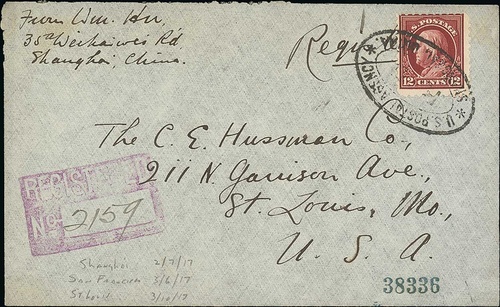 From Wm. Hu,
35a Weihaiwei Rd
Shanghai, China.
Reg
U.S. POSTAGE
12 CENTS 12
U.S. POSTAL AGENCY
The C. E. Hussman Co.,
211 N. Garrison Ave.,
St. Louis, Mo.,
U. S. A.
REGISTERED
No. 2159
Shanghai 2/7/17
San Francisco 3/6/17
St Louis 3/10/17
38336